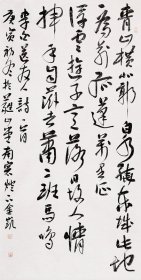 青山橫北郭白水繞東城此地
一為別孤蓬萬里征
浮雲遊子意落日故人情
揮手自茲去蕭々班馬鳴
李白送友人詩一首
庚寅初冬於 山堂南窗燈下